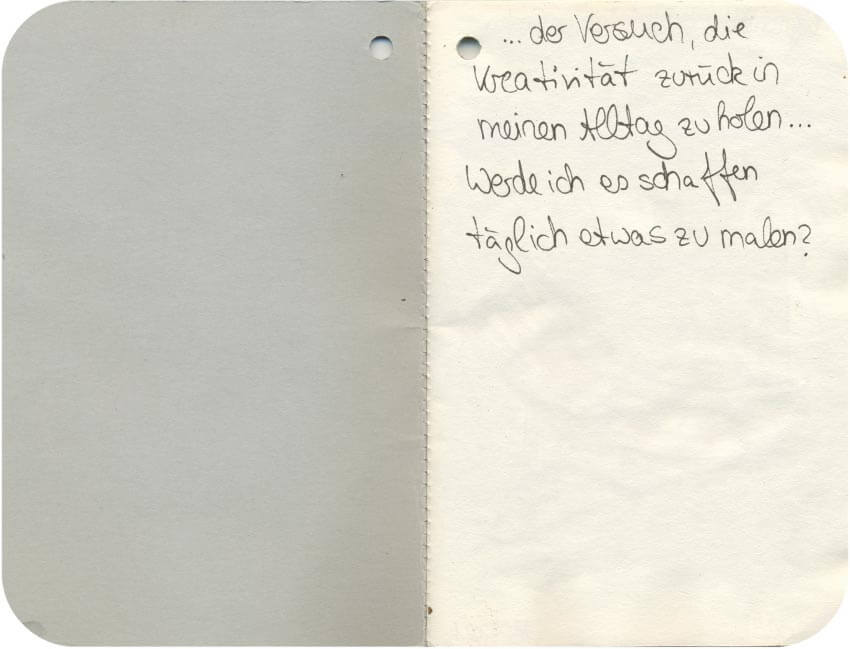 ... der Versuch, die
Kreativität zurück in
meinen Alltag zu holen...
Werde ich es schaffen
täglich etwas zu malen?